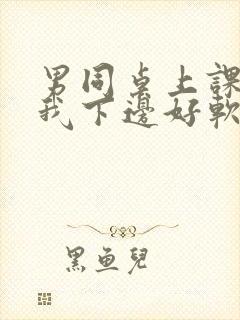 男同桌上課
我下邊好軟
黑魚兒